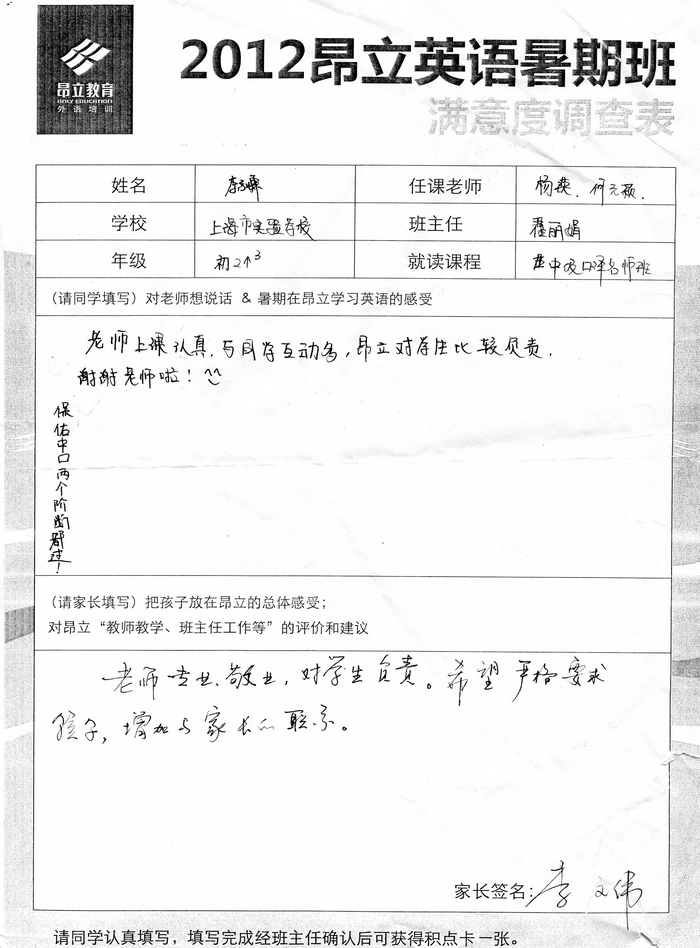 昂立教育
ONLY EDUCATION
外语培训
2012昂立英语暑期班
满意度调查表
姓名 任课老师 杨燕、何元颖、
学校 上海市实验学校 班主任 翟丽娟
年级 初2↑3 就读课程 中级口译名师班
(请同学填写) 对老师想说话 & 暑期在昂立学习英语的感受
老师上课认真,与同学互动多,昂立对学生比较负责,
谢谢老师啦!^^
保佑中口两个阶段都过!
(请家长填写) 把孩子放在昂立的总体感受;
对昂立“教师教学、班主任工作等”的评价和建议
老师专业、敬业,对学生负责。希望严格要求
孩子,增加与家长的联系。
家长签名:李文伟
请同学认真填写,填写完成经班主任确认后可获得积点卡一张。